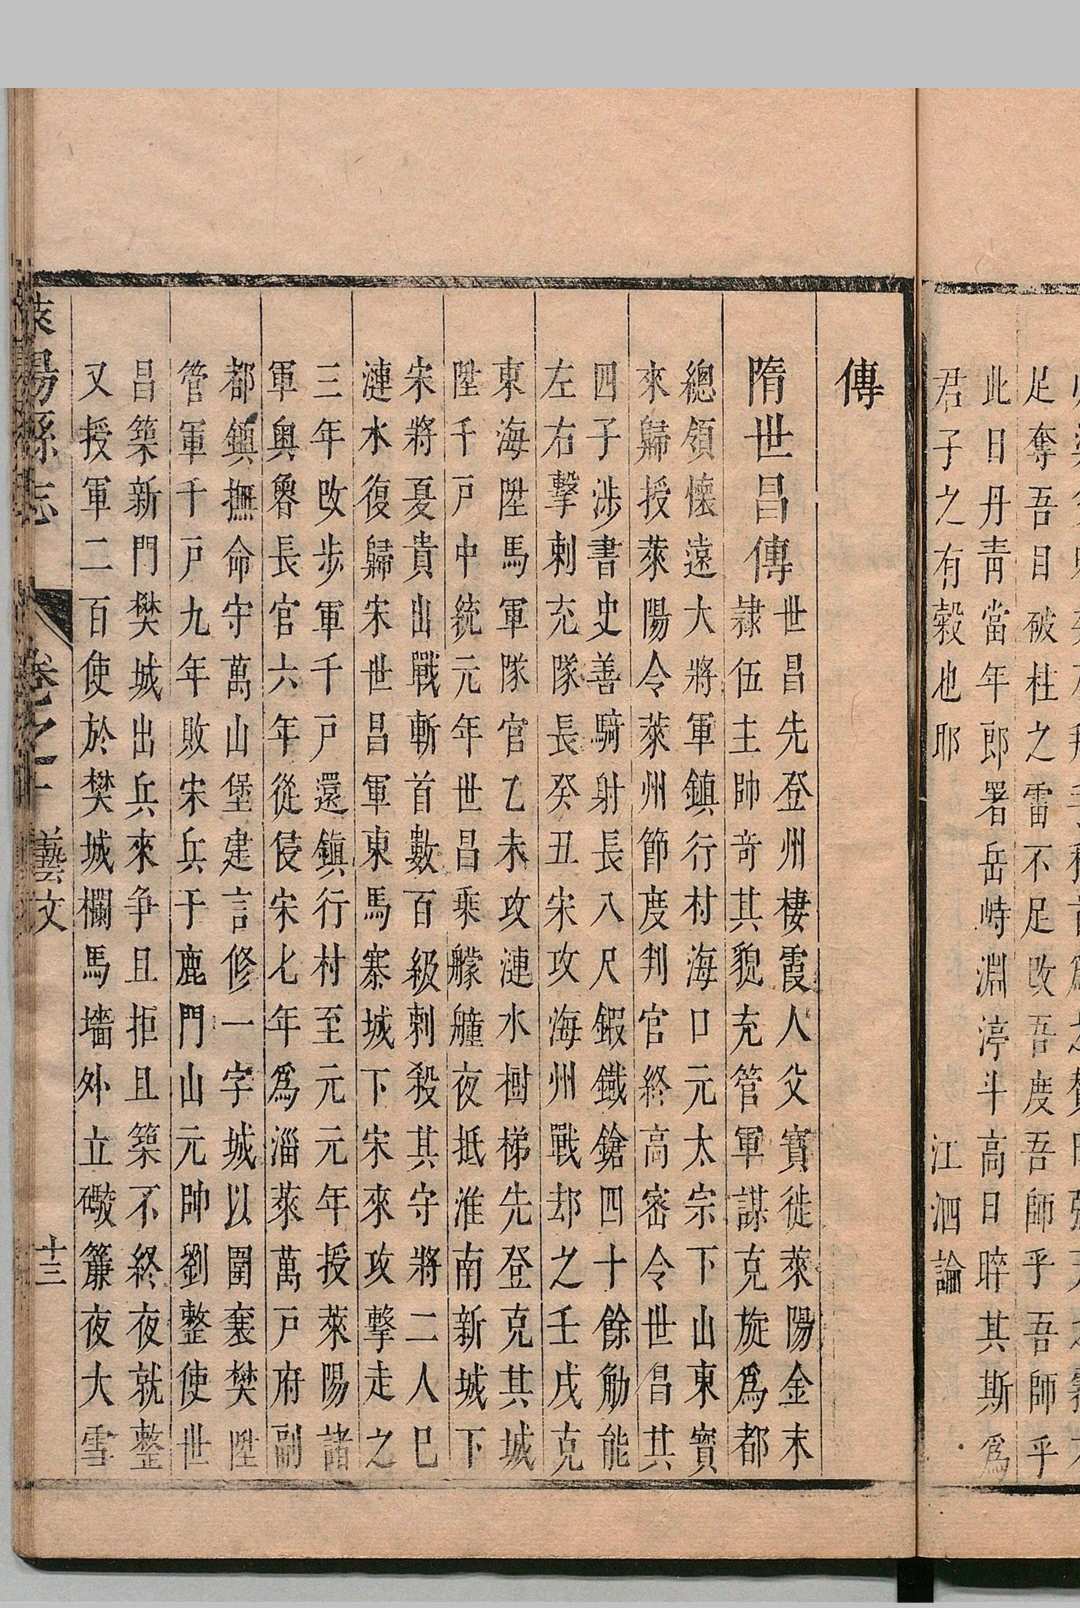 足奪吾目破柱之雷不足改吾度吾師乎吾師乎
此日丹靑當年郎署岳峙淵渟斗高日晬其斯爲
君子之有穀也耶 江泗論
傳
隋世昌傳 世昌先登州棲霞人父寶徙萊陽金末
隷伍主帥奇其貌充管軍謀克旋爲都
總領懷遠大將軍鎮行村海口元太宗下山東寶
來歸授萊陽令萊州節度判官終高密令世昌其
四子涉書史善騎射長八尺鍜鐵鎗四十餘觔能
左右擊刺充隊長癸丑宋攻海州戰却之壬戌克
東海陞馬軍隊官乙未攻漣水樹梯先登克其城
陞千戸中統元年世昌乘艨艟夜抵淮南新城下
宋將夏貴出戰斬首數百級刺殺其守將二人巳
漣水復歸宋世昌軍東馬寨城下宋來攻擊走之
三年改步軍千戸還鎮行村至元元年授萊陽諸
軍奥魯長官六年從侵宋七年爲淄萊萬戸府副
都鎮撫命守萬山堡建言修一字城以圍襄樊陞
管軍千戸九年敗宋兵于鹿門山元帥劉整使世
昌築新門樊城出兵來争且拒且築不終夜就整
又授軍二百使於樊城欄馬墻外立礮簾夜大雪
萊陽縣志 卷之十 藝文 十三